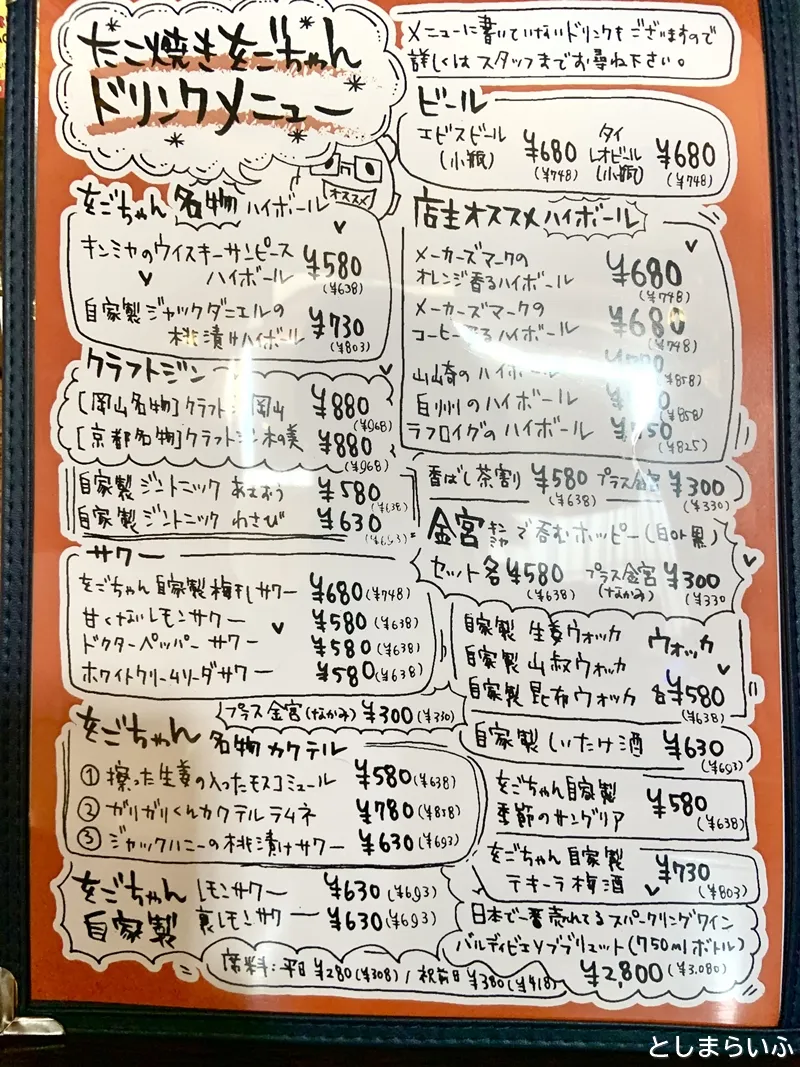 たこ焼きをごちゃん
ドリンクメニュー
メニューに書いていないドリンクもございますので
詳しくはスタッフまでお尋ね下さい。
ビール
エビスビール
(小瓶)
¥680
(¥748)
タイ
レオビール
(小瓶)
¥680
(¥748)
オススメ
をごちゃん 名物 ハイボール
キンミヤのウイスキーサンピース
ハイボール
¥580
(¥638)
自家製ジャックダニエルの
桃漬けハイボール
¥730
(¥803)
店主オススメハイボール
メーカーズマークの
オレンジ香るハイボール
¥680
(¥748)
メーカーズマークの
コーヒー香るハイボール
¥680
(¥748)
山崎のハイボール
(¥858)
白州のハイボール
(¥858)
ラフロイグのハイボール
(¥825)
クラフトジン
[岡山名物]クラフトジン岡山 ¥880
(¥968)
[京都名物]クラフトジン木の美 ¥880
(¥968)
自家製 ジントニック あさぶう ¥580
(¥638)
自家製 ジントニック わさび ¥630
(¥693)
香ばし茶割 ¥580 プラス金宮 ¥300
(¥638) (¥330)
金宮キンミヤで呑むホッピー(白or黒)
セット各¥580 プラス金宮 ¥300
(¥638) (なかみ) (¥330
サワー
をごちゃん自家製梅干しサワー ¥680(¥748)
甘くないレモンサワー ¥580(¥638)
ドクターペッパーサワー ¥580(¥638)
ホワイトクリームソーダサワー ¥580(¥638)
プラス金宮(なかみ) ¥300(¥330)
自家製 生姜ウォッカ ウォッカ
自家製 山椒ウォッカ
自家製 昆布ウォッカ 各¥580
(¥638)
自家製 しいたけ酒 ¥630
(¥693)
をごちゃん 名物カクテル
① 擦った生姜の入ったモスコミュール ¥580(¥638)
② ガリガリくんカクテルラムネ ¥780(¥858)
③ ジャックハニーの桃漬けサワー ¥630(¥693)
をごちゃん自家製
季節のサングリア
¥580
(¥638)
をごちゃん 自家製
テキーラ梅酒
¥730
(¥803)
をごちゃん
自家製
レモンサワー ¥630(¥693)
裏レモンサワー ¥630(¥693)
日本で一番売れてるスパークリングワイン
バルディビエソブリュット(750mlボトル)
¥2,800(¥3,080)
席料:平日¥280(¥308)/祝前日¥380(¥418)
としまらいふ